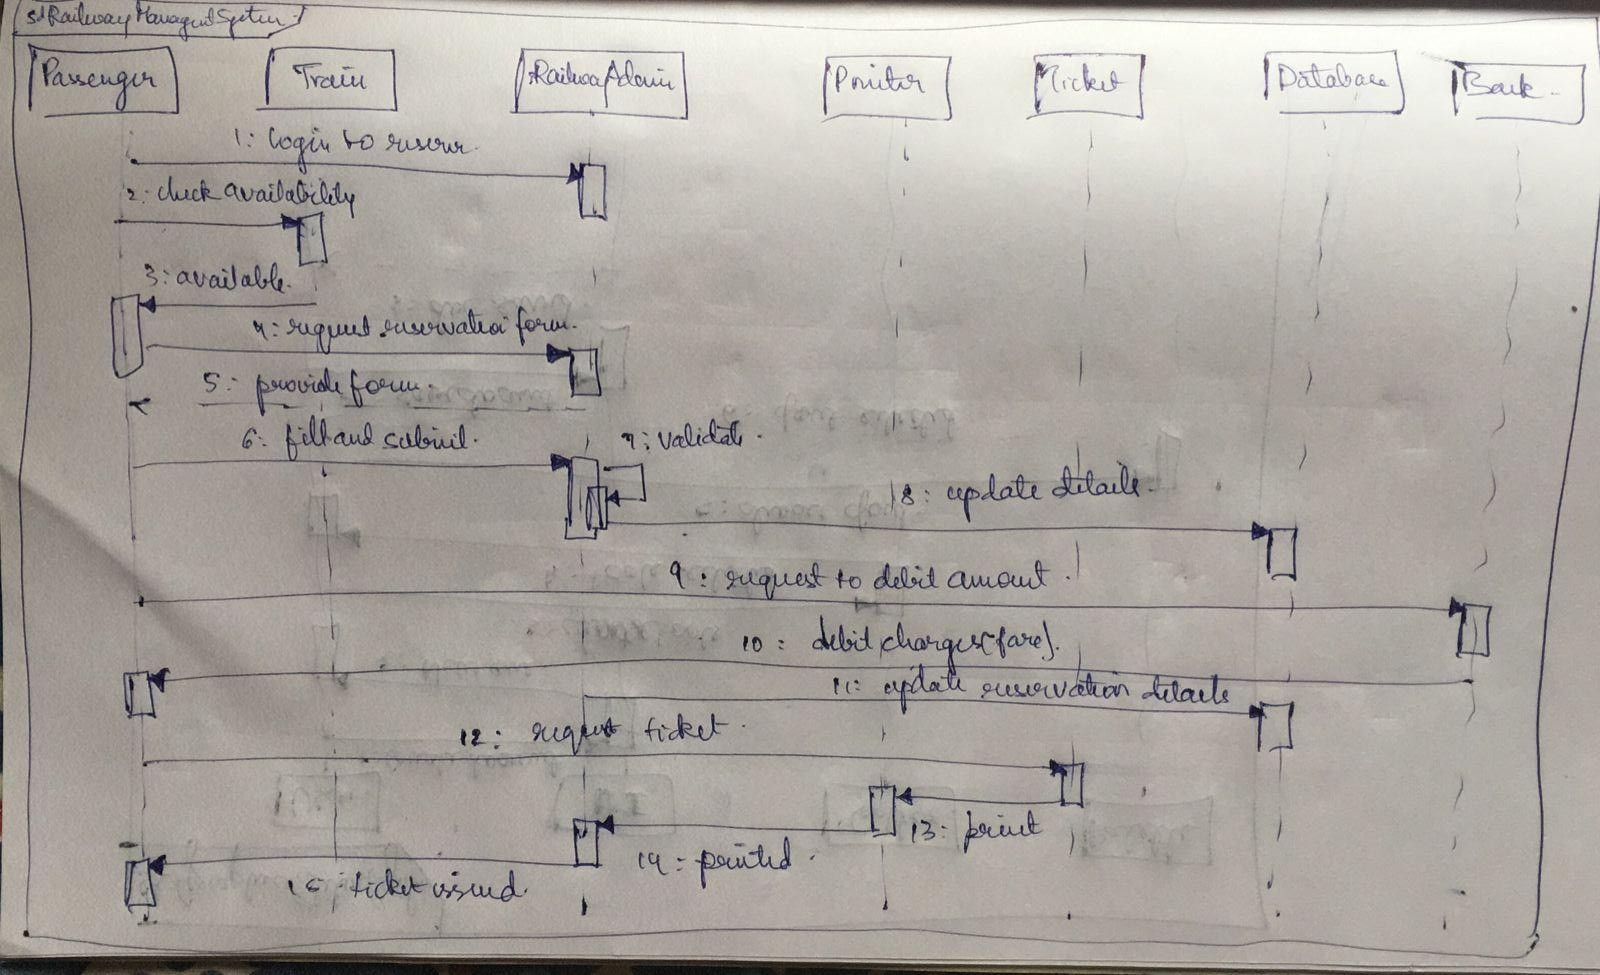 sd Railway Managent System
Passenger
Train
:Railway Admin
Printer
Ticket
Database
Bank.
1: login to reserve.
2: check availability
3: available.
4: request reservation form.
5: provide form.
6: fill and submit.
7: validate.
8: update details.
9: request to debit amount.
10: debit charges(fare).
11: update reservation details
12: request ticket.
13: print
14: printed.
15: ticket issued.